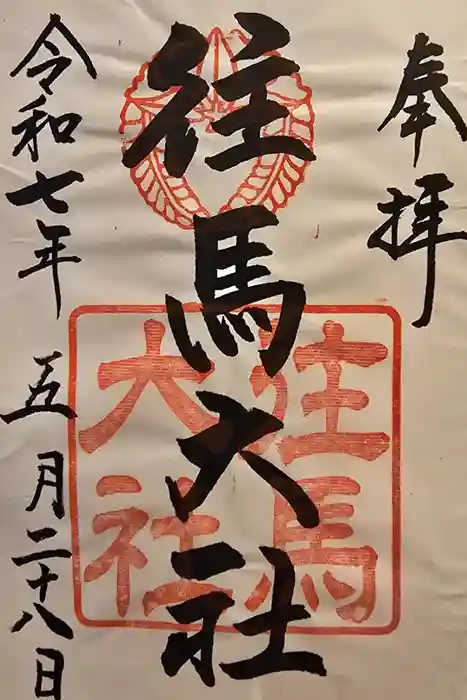 奉拝
往馬大社
往馬
大社
令和七年 五月二十八日